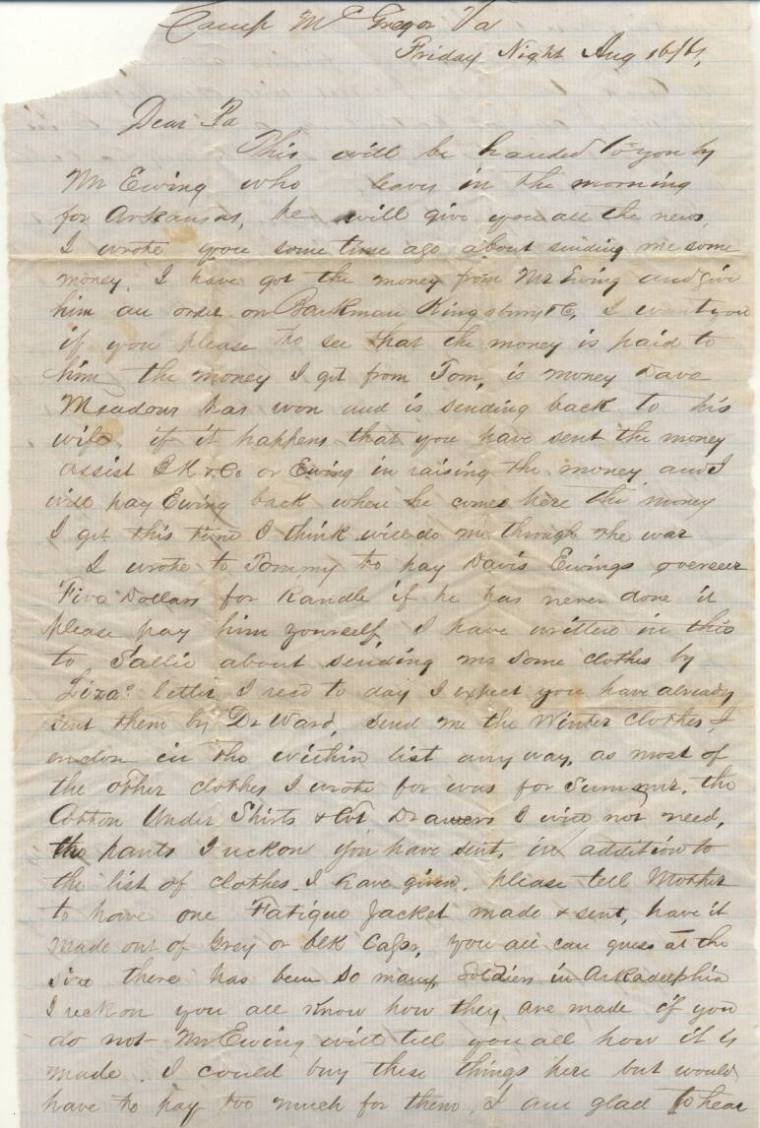 Camp McGregor Va
Friday Night Aug 16/61,
Dear Pa
This will be handed to you by
Mr Ewing who leaves in the morning
for Arkansas, he will give you all the news,
I wrote you some time ago about sending me some
money. I have got the money from Mr Ewing and give
him an order on Barkman Kingsbury & C, I want you
if you please to see that the money is paid to
him the money I get from Tom, is money Dave
Meadows has won and is sending back to his
wife. if it happens that you have sent the money
assist BK & Co or Ewing in raising the money and I
will pay Ewing back when he comes here the money
I get this time I think will do me through the war
I wrote to Tommy to pay Davis Ewings overseer
Five Dollars for Randle if he has never done it
please pay him yourself, I have written in this
to Sallie about sending me some clothes by
Liza's letter I recd to day I expect you have already
sent them by Dr Ward, send me the Winter clothes I
enclose in the within list any way, as most of
the other clothes I wrote for was for Summer. the
Cotton Under Shirts & Cot Drawers I will not need,
the pants I reckon you have sent, in addition to
the list of clothes I have given, please tell Mother
to have one Fatigue Jacket made & sent, have it
made out of Grey or blk you all can guess at the
size there has been so many Soldiers in Arkadelphia
I reckon you all know how they are made if you
do not Mr Ewing will tell you all how it is
made. I could buy these things here but would
have to pay too much for them, I am glad to hear